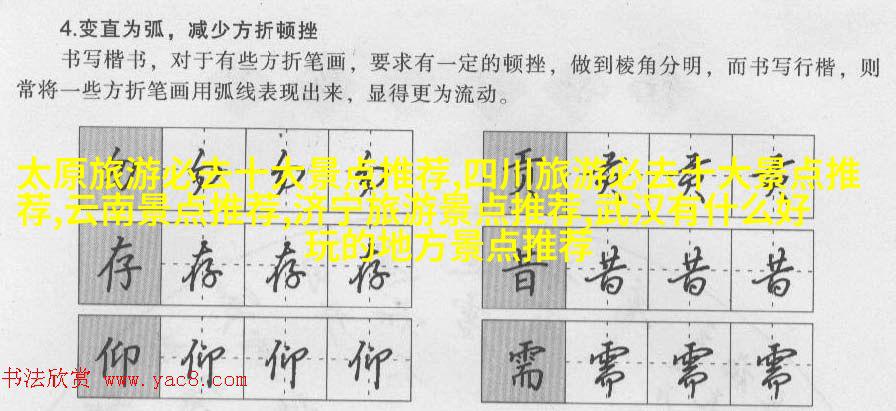 4.变直为弧，减少方折顿挫
书写楷书，对于有些方折笔画，要求有一定的顿挫，做到棱角分明，而书写行楷，则
常将一些方折笔画用弧线表现出来，显得更为流动。
太原旅游必去十大景点推荐,四川旅游必去十大景点推
荐,云南景点推荐,济宁旅游景点推荐,武汉有什么好
玩的地方景点推荐
存 存 存 存 昔 昔 昔 昔
仰 仰 仰 仰 需 需 需 需
书法欣赏 www.yac8.com